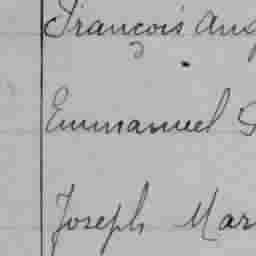 François Aug
Emmanuel G
Joseph Mar